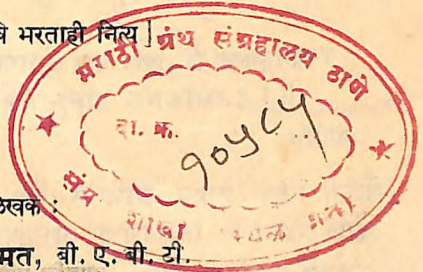 भरताही नित्य ]
मराठी ग्रंथ संग्रहालय ठाणे
दा. क्र.
१०५८५
शाखा
लेखक :
मत, बी. ए. बी. टी.